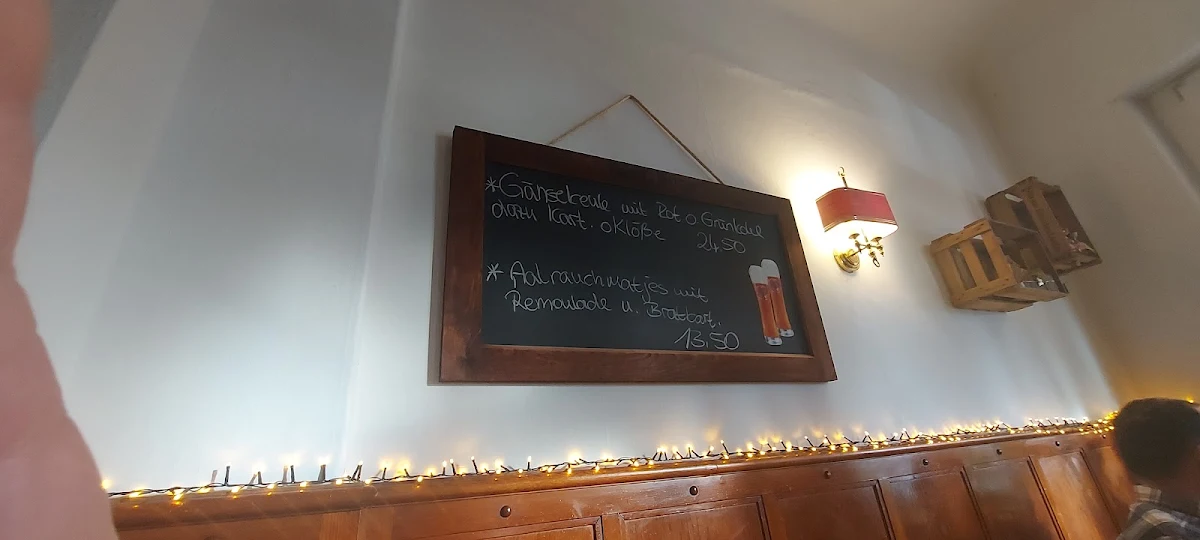 *Gänsekeule mit Rot o Grünkohl
dazu Kart. o Klöße 24,50
*Aalrauchmatjes mit
Remoulade u. Bratkart.
13,50